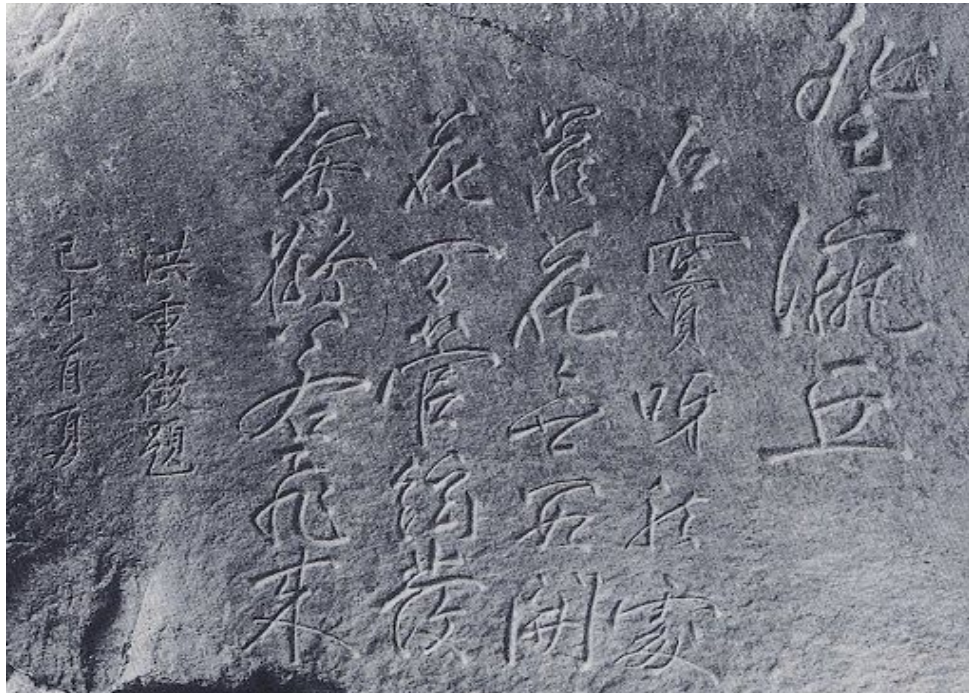 登瀛丘
石竇呀然處
巖花無數開
花間管絃發
鸞鶴若飛來
洪重徵題
己未首夏